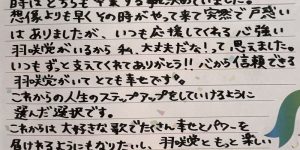 想像よりも早くその時がやって来て突然で戸惑い
はありましたが、いつも応援してくれる心強い
羽咲党がいるから私、大丈夫だな!って思えました。
いつもずっと支えてくれてありがとう!!心から信頼できる
羽咲党がいてとても幸せです。
これからの人生のステップアップをしていけるように
選んだ選択です。
これからは大好きな歌でたくさん幸せとパワーを
届けれるようにもなりたいし、羽咲党ともっと楽しい